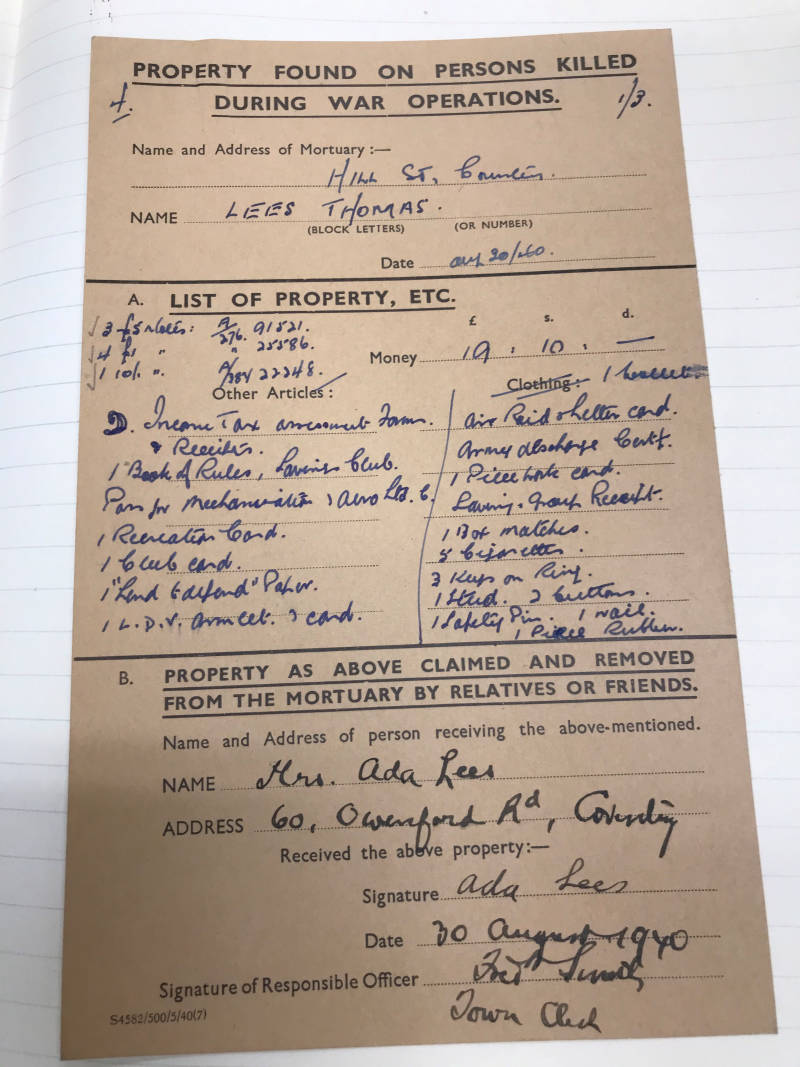 PROPERTY FOUND ON PERSONS KILLED
DURING WAR OPERATIONS.
4.
1/3.
Name and Address of Mortuary :—
HILL ST,
NAME LEES THOMAS.
(BLOCK LETTERS) (OR NUMBER)
Date Aug 30/40.
A. LIST OF PROPERTY, ETC.
£ s. d.
3 £5 notes: A/276. 91521.
4 £1 " " 25586.
1 10/- ". 22248.
Money 19 . 10 . —
Other Articles :
Clothing :- 1
D. Income Tax assessment Forms.
& Receipts.
1 Book of Rules, Savings Club.
Pass for Mechanisation & Aero Ltd. C.
1 Recreation Card.
1 Club card.
1 "Lend to defend" Paper.
1 L.D.V. Armlet. & card.
Air Raid Shelter card.
Army discharge Certf.
1 Piece work card.
Savings Group Receipt.
1 Box matches.
5 Cigarettes.
3 Keys on Ring.
1 Stud. 2 buttons.
1 Safety Pin. 1 nail.
1 Piece Rubber.
B. PROPERTY AS ABOVE CLAIMED AND REMOVED
FROM THE MORTUARY BY RELATIVES OR FRIENDS.
Name and Address of person receiving the above-mentioned.
NAME Mrs. Ada Lees
ADDRESS 60, Owenford Rd, Coventry
Received the above property:—
Signature Ada Lees
Date 30 August 1940
Signature of Responsible Officer Fredk Smith
Town Clerk
S4582/500/5/40(7)